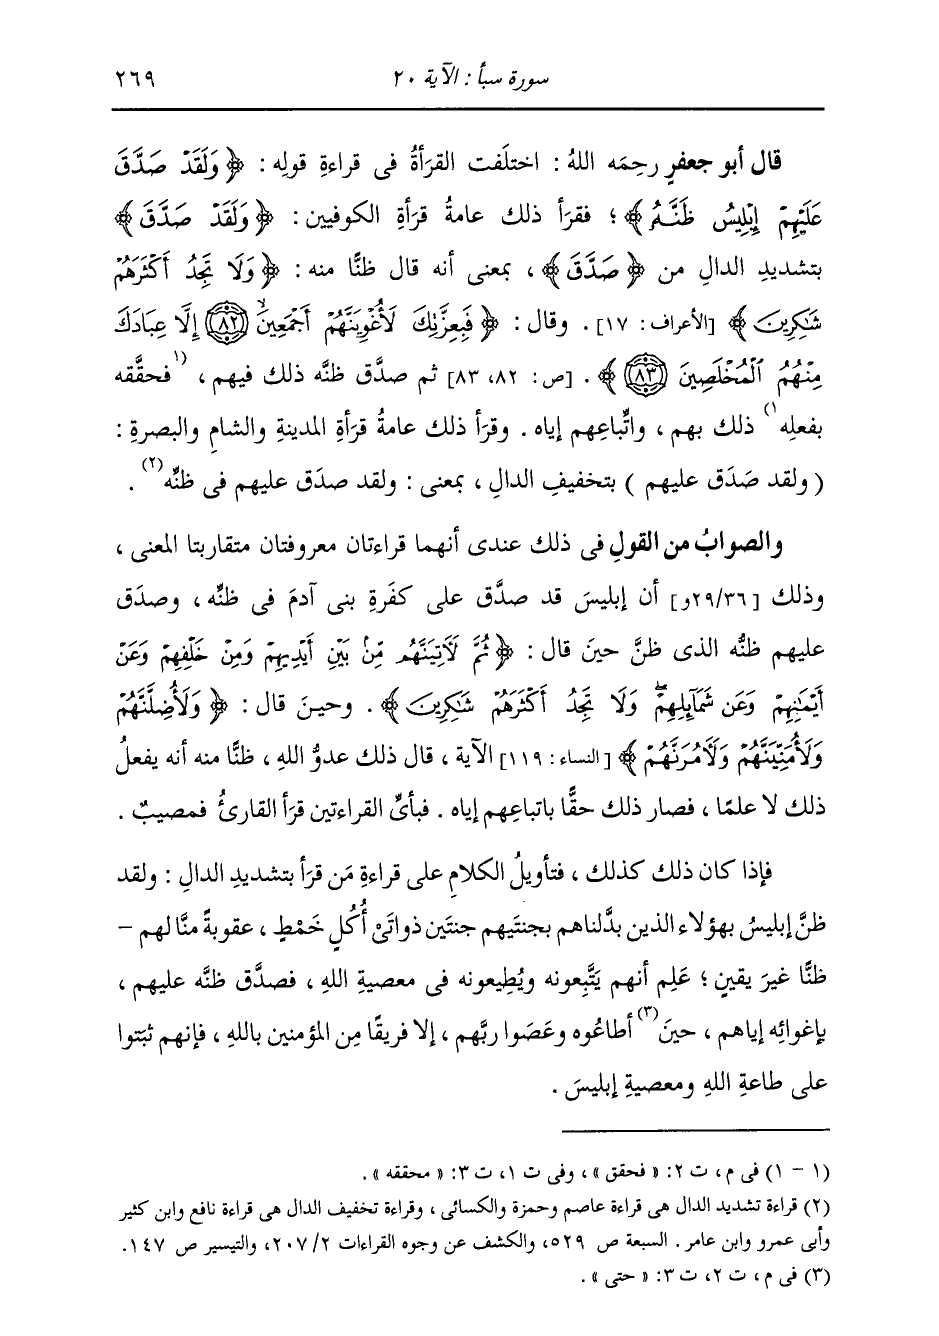 سورة سبأ : الآية ٢٠ ٢٦٩
قال أبو جعفرٍ رحِمَه اللهُ : اختلَفت القرَأةُ فى قراءةِ قولِه : ﴿ وَلَقَدْ صَدَّقَ
عَلَيْهِمْ إِبْلِيسُ ظَنَّهُ ﴾ ؛ فقرَأ ذلك عامةُ قرَأةِ الكوفيين : ﴿ وَلَقَدْ صَدَّقَ ﴾
بتشديدِ الدالِ من ﴿ صَدَّقَ ﴾ ، بمعنى أنه قال ظنًّا منه : ﴿ وَلَا تَجِدُ أَكْثَرَهُمْ
شَٰكِرِينَ ﴾ [الأعراف : ١٧] . وقال : ﴿ فَبِعِزَّتِكَ لَأُغْوِيَنَّهُمْ أَجْمَعِينَ ۙ ﴿٨٢﴾ إِلَّا عِبَادَكَ
مِنْهُمُ الْمُخْلَصِينَ ﴿٨٣﴾ ﴾ . [ص : ٨٢، ٨٣] ثم صدَّق ظنَّه ذلك فيهم ، (١فحقَّقه
بفعلِه١) ذلك بهم ، واتِّباعِهم إياه . وقرَأ ذلك عامةُ قرَأةِ المدينةِ والشامِ والبصرةِ :
( ولقد صَدَق عليهم ) بتخفيفِ الدالِ ، بمعنى : ولقد صدَق عليهم فى ظنِّه(٢) .
والصوابُ من القولِ فى ذلك عندى أنهما قراءتان معروفتان متقاربتا المعنى ،
وذلك [٢٩/٣٦و] أن إبليسَ قد صدَّق على كفَرةِ بنى آدمَ فى ظنِّه ، وصدَق
عليهم ظنُّه الذى ظنَّ حينَ قال : ﴿ ثُمَّ لَآتِيَنَّهُم مِّنْ بَيْنِ أَيْدِيهِمْ وَمِنْ خَلْفِهِمْ وَعَنْ
أَيْمَٰنِهِمْ وَعَن شَمَآئِلِهِمْ ۖ وَلَا تَجِدُ أَكْثَرَهُمْ شَٰكِرِينَ ﴾ . وحينَ قال : ﴿ وَلَأُضِلَّنَّهُمْ
وَلَأُمَنِّيَنَّهُمْ وَلَآمُرَنَّهُمْ ﴾ [النساء : ١١٩] الآية ، قال ذلك عدوُّ اللهِ ، ظنًّا منه أنه يفعلُ
ذلك لا علمًا ، فصار ذلك حقًّا باتباعِهم إياه . فبأىِّ القراءتين قرَأ القارئُ فمصيبٌ .
فإذا كان ذلك كذلك ، فتأويلُ الكلامِ على قراءةِ مَن قرَأ بتشديدِ الدالِ : ولقد
ظنَّ إبليسُ بهؤلاء الذين بدَّلناهم بجنتَيهم جنتَين ذواتَىْ أُكُلٍ خَمْطٍ ، عقوبةً منَّا لهم –
ظنًّا غيرَ يقينٍ ؛ عَلِم أنهم يَتَّبِعونه ويُطِيعونه فى معصيةِ اللهِ ، فصدَّق ظنَّه عليهم ،
بإغوائِه إياهم ، حينَ(٣) أطاعُوه وعصَوا ربَّهم ، إلا فريقًا مِن المؤمنين باللهِ ، فإنهم ثبَتوا
على طاعةِ اللهِ ومعصيةِ إبليسَ .
(١ – ١) فى م ، ت ٢: « فحقق » ، وفى ت ١، ت ٣: « محققه » .
(٢) قراءة تشديد الدال هى قراءة عاصم وحمزة والكسائى ، وقراءة تخفيف الدال هى قراءة نافع وابن كثير
وأبى عمرو وابن عامر . السبعة ص ٥٢٩، والكشف عن وجوه القراءات ٢/ ٢٠٧، والتيسير ص ١٤٧.
(٣) فى م ، ت ٢، ت ٣: « حتى » .